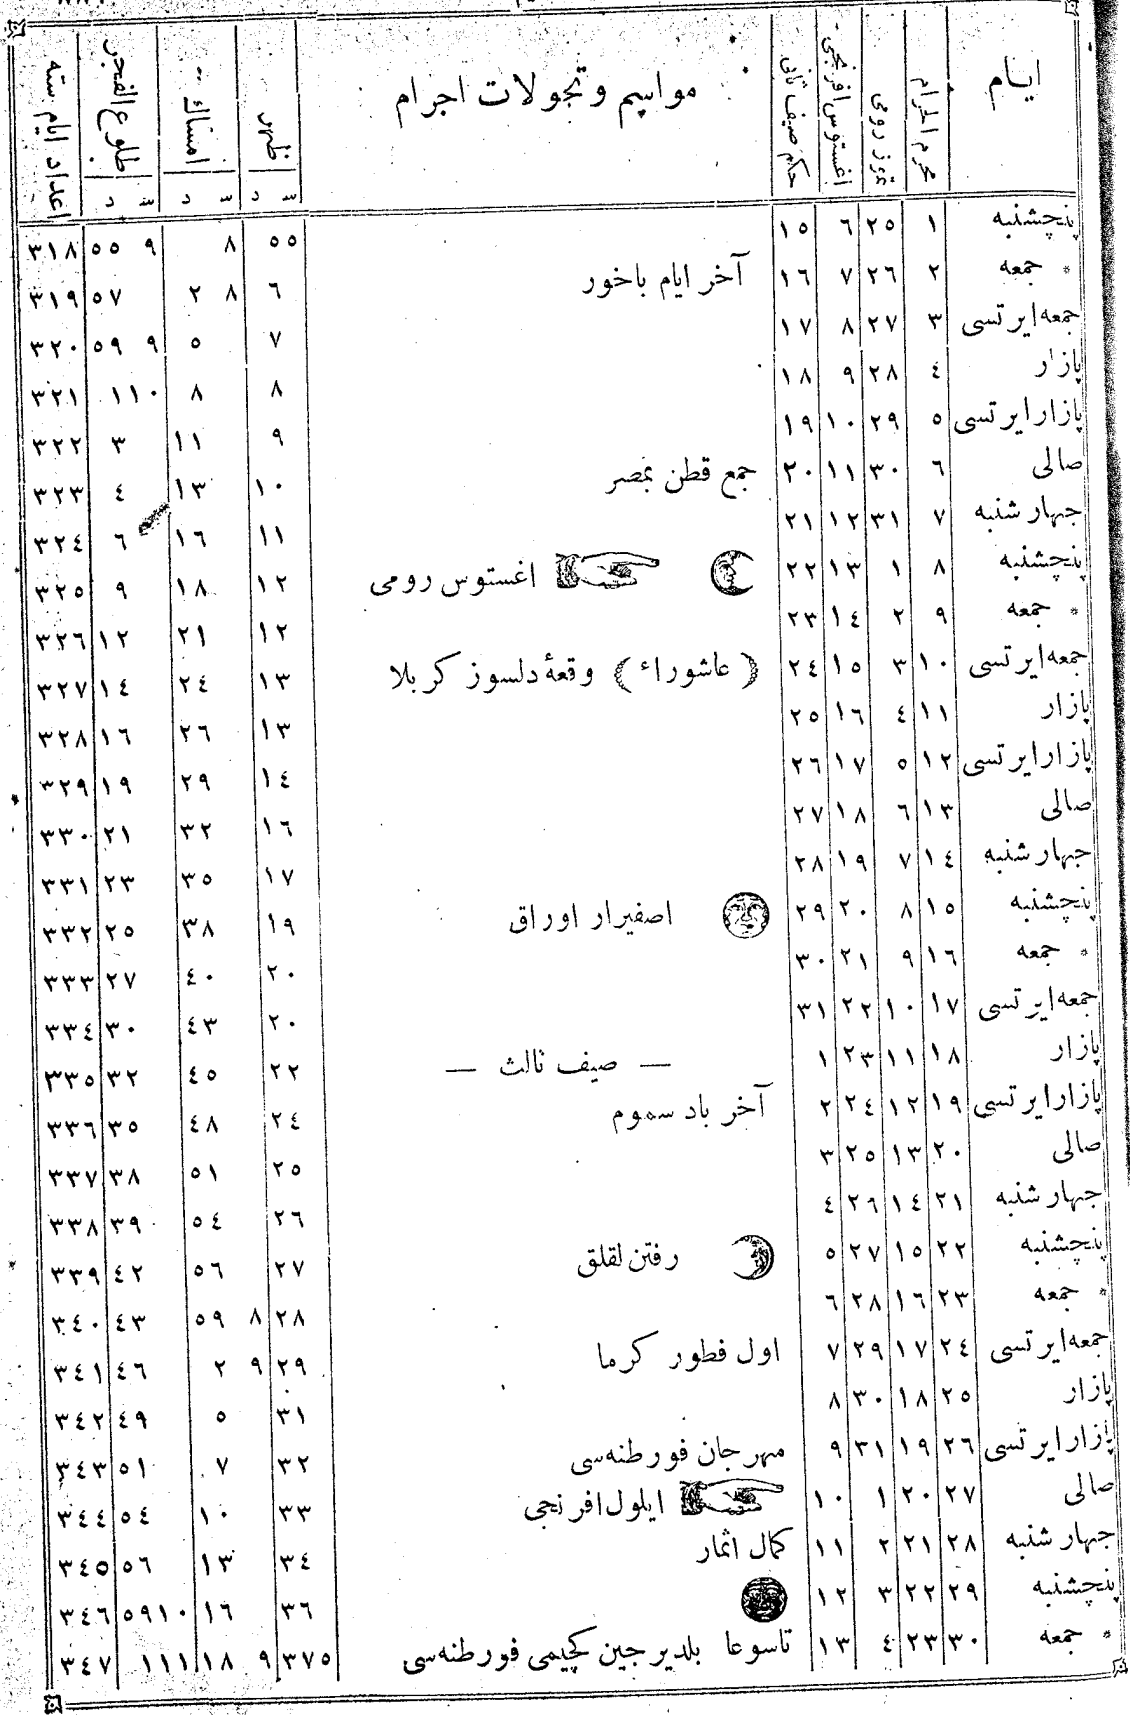 ايام | محرم الحرام | تموز رومى | اغستوس افرنجى | حكم صيف ثانى | مواسم وتحولات اجرام | ظهر س د | امساك س د | طلوع الفجر س د | اعداد ايام سنه
پنجشنبه | ١ | ٢٥ | ٦ | ١٥ | | ٥٥ | ٨ | ٩ ٥٥ | ٣١٨
* جمعه | ٢ | ٢٦ | ٧ | ١٦ | آخر ايام باخور | ٦ | ٨ ٢ | ٥٧ | ٣١٩
جمعه ايرتسى | ٣ | ٢٧ | ٨ | ١٧ | | ٧ | ٥ | ٩ ٥٩ | ٣٢٠
پازار | ٤ | ٢٨ | ٩ | ١٨ | | ٨ | ٨ | ١٠ ١ | ٣٢١
پازار ايرتسى | ٥ | ٢٩ | ١٠ | ١٩ | | ٩ | ١١ | ٣ | ٣٢٢
صالى | ٦ | ٣٠ | ١١ | ٢٠ | جمع قطن بمصر | ١٠ | ١٣ | ٤ | ٣٢٣
جهار شنبه | ٧ | ٣١ | ١٢ | ٢١ | | ١١ | ١٦ | ٦ | ٣٢٤
پنجشنبه | ٨ | ١ | ١٣ | ٢٢ | اغستوس رومى | ١٢ | ١٨ | ٩ | ٣٢٥
* جمعه | ٩ | ٢ | ١٤ | ٢٣ | | ١٢ | ٢١ | ١٢ | ٣٢٦
جمعه ايرتسى | ١٠ | ٣ | ١٥ | ٢٤ | ﴿ عاشوراء ﴾ وقعهٔ دلسوز كربلا | ١٣ | ٢٤ | ١٤ | ٣٢٧
پازار | ١١ | ٤ | ١٦ | ٢٥ | | ١٣ | ٢٦ | ١٦ | ٣٢٨
پازار ايرتسى | ١٢ | ٥ | ١٧ | ٢٦ | | ١٤ | ٢٩ | ١٩ | ٣٢٩
صالى | ١٣ | ٦ | ١٨ | ٢٧ | | ١٦ | ٣٢ | ٢١ | ٣٣٠
جهار شنبه | ١٤ | ٧ | ١٩ | ٢٨ | | ١٧ | ٣٥ | ٢٣ | ٣٣١
پنجشنبه | ١٥ | ٨ | ٢٠ | ٢٩ | اصفيرار اوراق | ١٩ | ٣٨ | ٢٥ | ٣٣٢
* جمعه | ١٦ | ٩ | ٢١ | ٣٠ | | ٢٠ | ٤٠ | ٢٧ | ٣٣٣
جمعه ايرتسى | ١٧ | ١٠ | ٢٢ | ٣١ | | ٢٠ | ٤٣ | ٣٠ | ٣٣٤
پازار | ١٨ | ١١ | ٢٣ | ١ | — صيف ثالث — | ٢٢ | ٤٥ | ٣٢ | ٣٣٥
پازار ايرتسى | ١٩ | ١٢ | ٢٤ | ٢ | آخر باد سموم | ٢٤ | ٤٨ | ٣٥ | ٣٣٦
صالى | ٢٠ | ١٣ | ٢٥ | ٣ | | ٢٥ | ٥١ | ٣٨ | ٣٣٧
جهار شنبه | ٢١ | ١٤ | ٢٦ | ٤ | | ٢٦ | ٥٤ | ٣٩ | ٣٣٨
پنجشنبه | ٢٢ | ١٥ | ٢٧ | ٥ | رفتن لقلق | ٢٧ | ٥٦ | ٤٢ | ٣٣٩
* جمعه | ٢٣ | ١٦ | ٢٨ | ٦ | | ٢٨ | ٨ ٥٩ | ٤٣ | ٣٤٠
جمعه ايرتسى | ٢٤ | ١٧ | ٢٩ | ٧ | اول فطور كرما | ٢٩ | ٩ ٢ | ٤٦ | ٣٤١
پازار | ٢٥ | ١٨ | ٣٠ | ٨ | | ٣١ | ٥ | ٤٩ | ٣٤٢
پازار ايرتسى | ٢٦ | ١٩ | ٣١ | ٩ | مهرجان فورطنه‌سى | ٣٢ | ٧ | ٥١ | ٣٤٣
صالى | ٢٧ | ٢٠ | ١ | ١٠ | ايلول افرنجى | ٣٣ | ١٠ | ٥٤ | ٣٤٤
جهار شنبه | ٢٨ | ٢١ | ٢ | ١١ | كمال اثمار | ٣٤ | ١٣ | ٥٦ | ٣٤٥
پنجشنبه | ٢٩ | ٢٢ | ٣ | ١٢ | | ٣٦ | ١٦ | ١٠ ٥٩ | ٣٤٦
* جمعه | ٣٠ | ٢٣ | ٤ | ١٣ | تاسوعا بلديرجين كچيمى فورطنه‌سى | ٣٧٥ | ٩ ١٨ | ١١ ١ | ٣٤٧